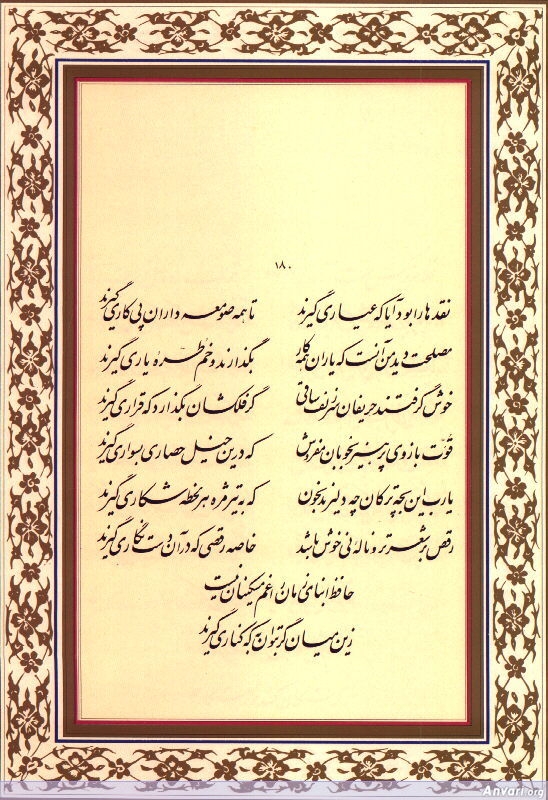 ۱۸۰
نقدها را بود آیا که عیاری گیرند تا همه صومعه داران پی کاری گیرند
مصلحت دید من آنست که یاران همه کار بگذارند و خم طره یاری گیرند
خوش گرفتند حریفان سر زلف ساقی گر فلکشان بگذارد که قراری گیرند
قوّت بازوی پرهیز بخوبان مفروش که درین خیل حصاری بسواری گیرند
یارب این بچه ترکان چه دلیرند بخون که به تیر مژه هر لحظه شکاری گیرند
رقص بر شعر تر و ناله نی خوش باشد خاصه رقصی که در آن دست نگاری گیرند
حافظ ابنای زمان را غم مسکینان نیست
زین میان گر بتوان به که کناری گیرند
Anvari.org